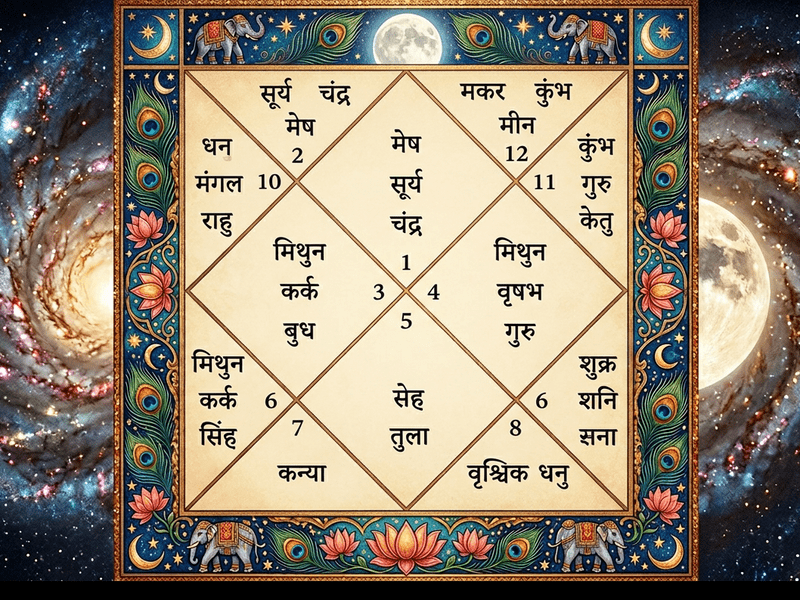 सूर्य चंद्र
मेष
2
मकर कुंभ
मीन
12
धन
मंगल 10
राहु
मेष
सूर्य
चंद्र
1
कुंभ
11 गुरु
केतु
मिथुन
कर्क 3
बुध
मिथुन
4 वृषभ
गुरु
5
सेह
तुला
मिथुन
कर्क 6
सिंह
7
कन्या
शुक्र
6 शनि
सना
8
वृश्चिक धनु